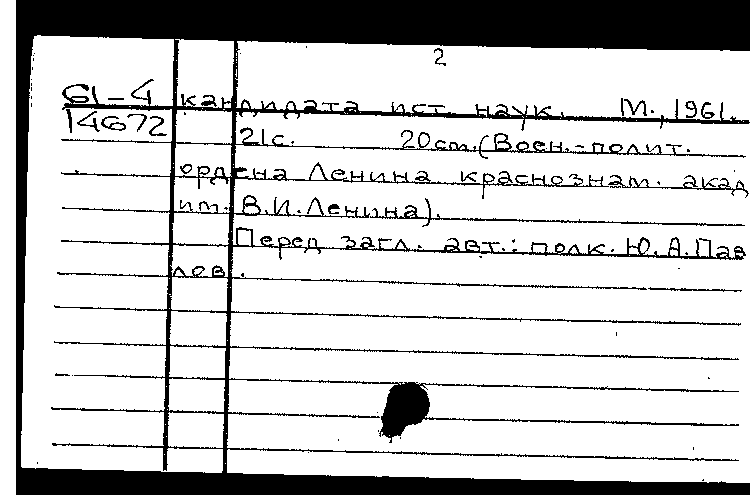 2
61-4 кандидата ист. наук. М., 1961.
14672 21с. 20см.(Воен.-полит.
ордена Ленина краснознам. акад
им. В.И.Ленина).
Перед загл. авт.: полк. Ю.А.Пав
лов.